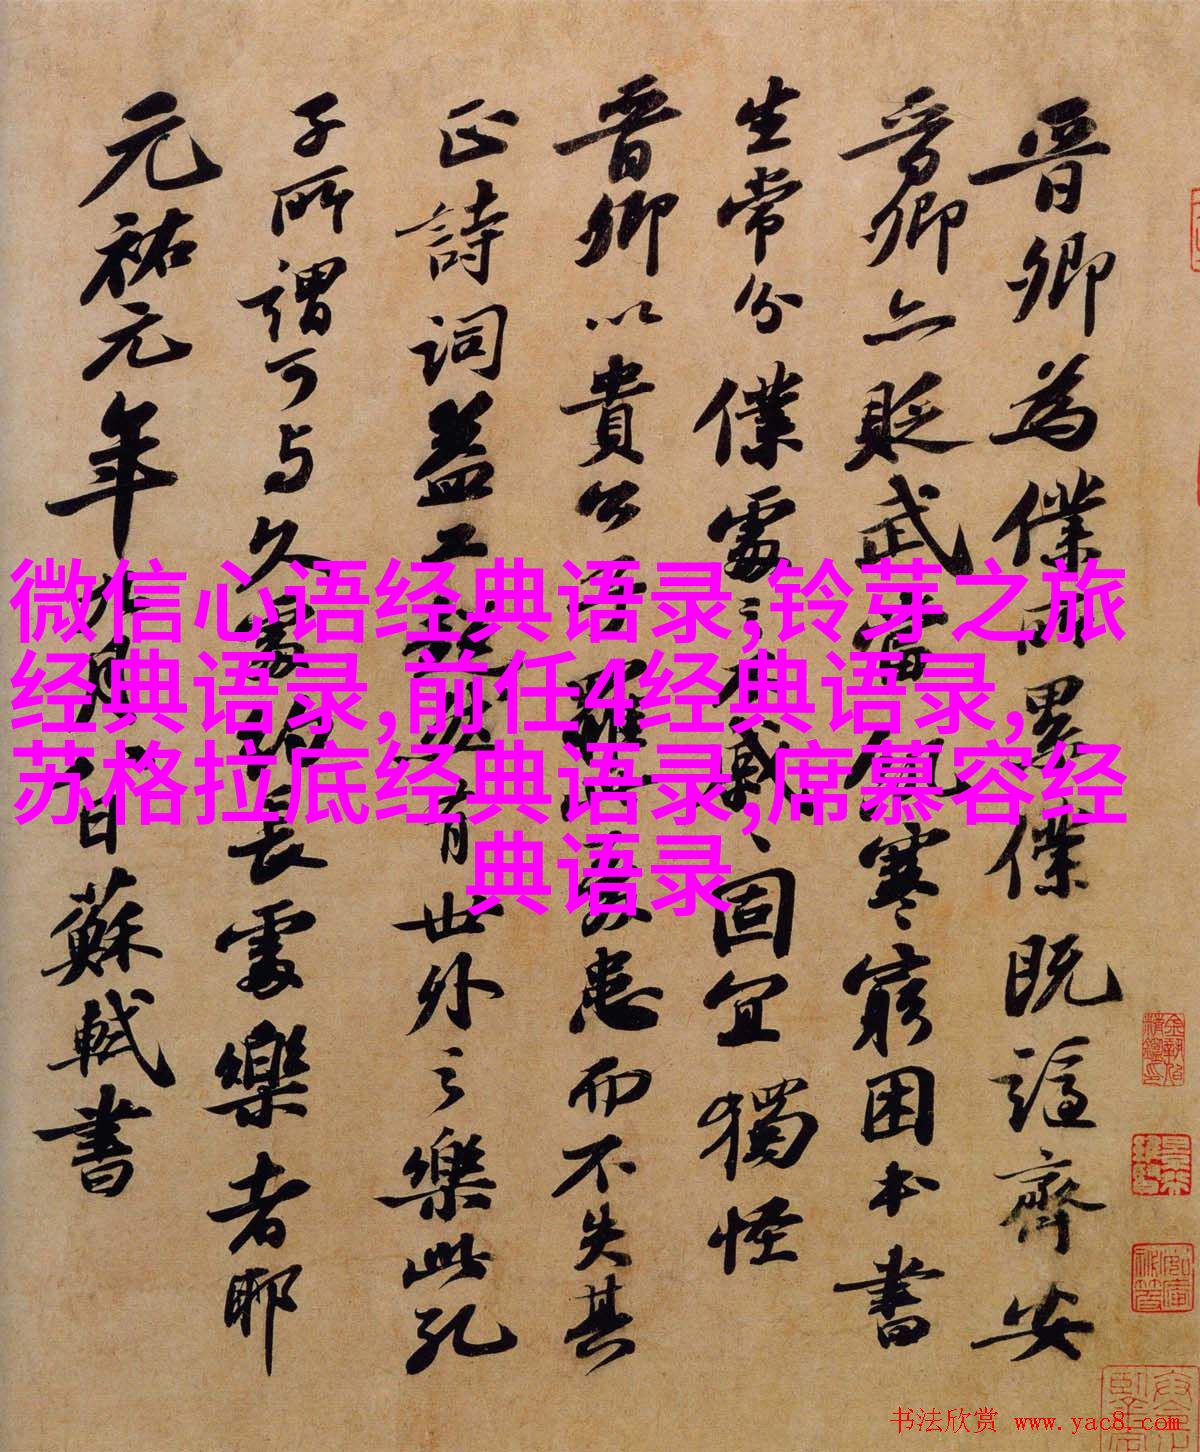 晋卿為僕所累僕既謫齊安
晋卿亦貶武當飢寒窮困本書
生常分僕處之不戚戚固宜獨怪
晋卿以貴公子罹此憂患而不失其
正詩詞益工超然有世外之樂此孔
子所謂可与久處約長處樂者耶
元祐元年九月八日蘇軾書
微信心语经典语录,铃芽之旅
经典语录,前任4经典语录,
苏格拉底经典语录,席慕容经
典语录
书法欣赏 www.yac8.com